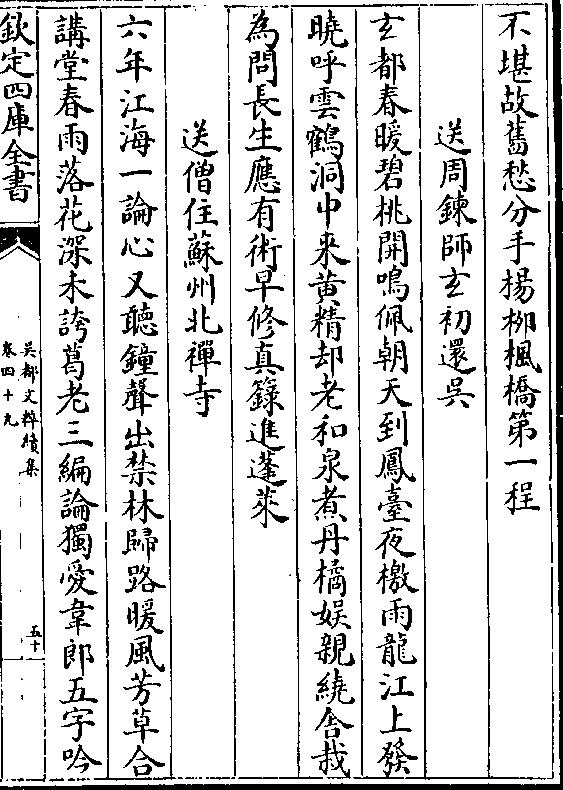 不堪故舊愁分手楊柳楓橋第一程
送周鍊師玄初還吳
玄都春暖碧桃開鳴佩朝天到鳳臺夜檄雨龍江上發
曉呼雲鶴洞中来黄精却老和泉煮丹橘娱親繞舍栽
為問長生應有術早修真籙進蓬萊
送僧住蘇州北禪寺
六年江海一論心又聽鐘聲出禁林歸路暖風芳草合
講堂春雨落花深未誇葛老三編論獨愛韋郎五字吟
欽定四庫全書
吳都文粹續集
卷四十九
五十